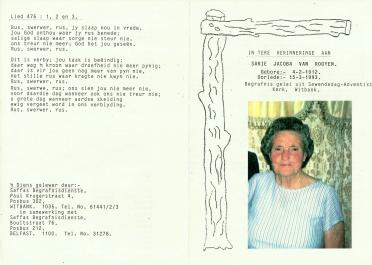 Lied 476 : 1, 2 en 3.
Rus, swerwer, rus, jy slaap nou in vrede,
jou God onthou waar jy rus benede;
Salige slaap waar sorge nie steur nie,
ons treur nie meer; God het jou geseën.
Rus, swerwer, rus.
Dit is verby; jou taak is beëindig;
daar wag 'n kroon waar droefheid nie meer pynig;
daar is vir jou geen nag meer van pyn nie,
net stille rus waar kragte nie kwyn nie.
Rus, swerwer, rus.
Rus, swerwe, rus; ons sien jou nie meer nie,
voor daardie dag wanneer ook ons nie treur nie;
o grote dag wanneer aardse skeiding
ewig vergeet word in ons verblyding.
Rus, swerwer, rus.
'n Diens gelewer deur:-
Saffas Begrafnisdienste,
Paul Krugerstraat 4,
Posbus 302,
WITBANK. 1035. Tel. No. 61441/2/3
in samewerking met
Saffas Begrafnisdienste,
Boultstraat 76,
Posbus 212,
BELFAST. 1100. Tel. No. 31276.
IN TERE HERINNERINGE AAN
SARIE JACOBA VAN ROOYEN.
Gebore:- 4-2-1912.
Oorlede:- 15-3-1993.
Begrafnis gelei uit Sewendedag-Adventist
Kerk, Witbank.